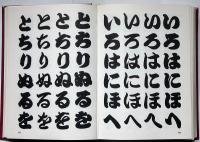 いろはにほへ
いろはにほへ
いろはにほへ
いろはにほへ
とちりぬるを
とちりぬるを
とちりぬるを
とちりぬるを